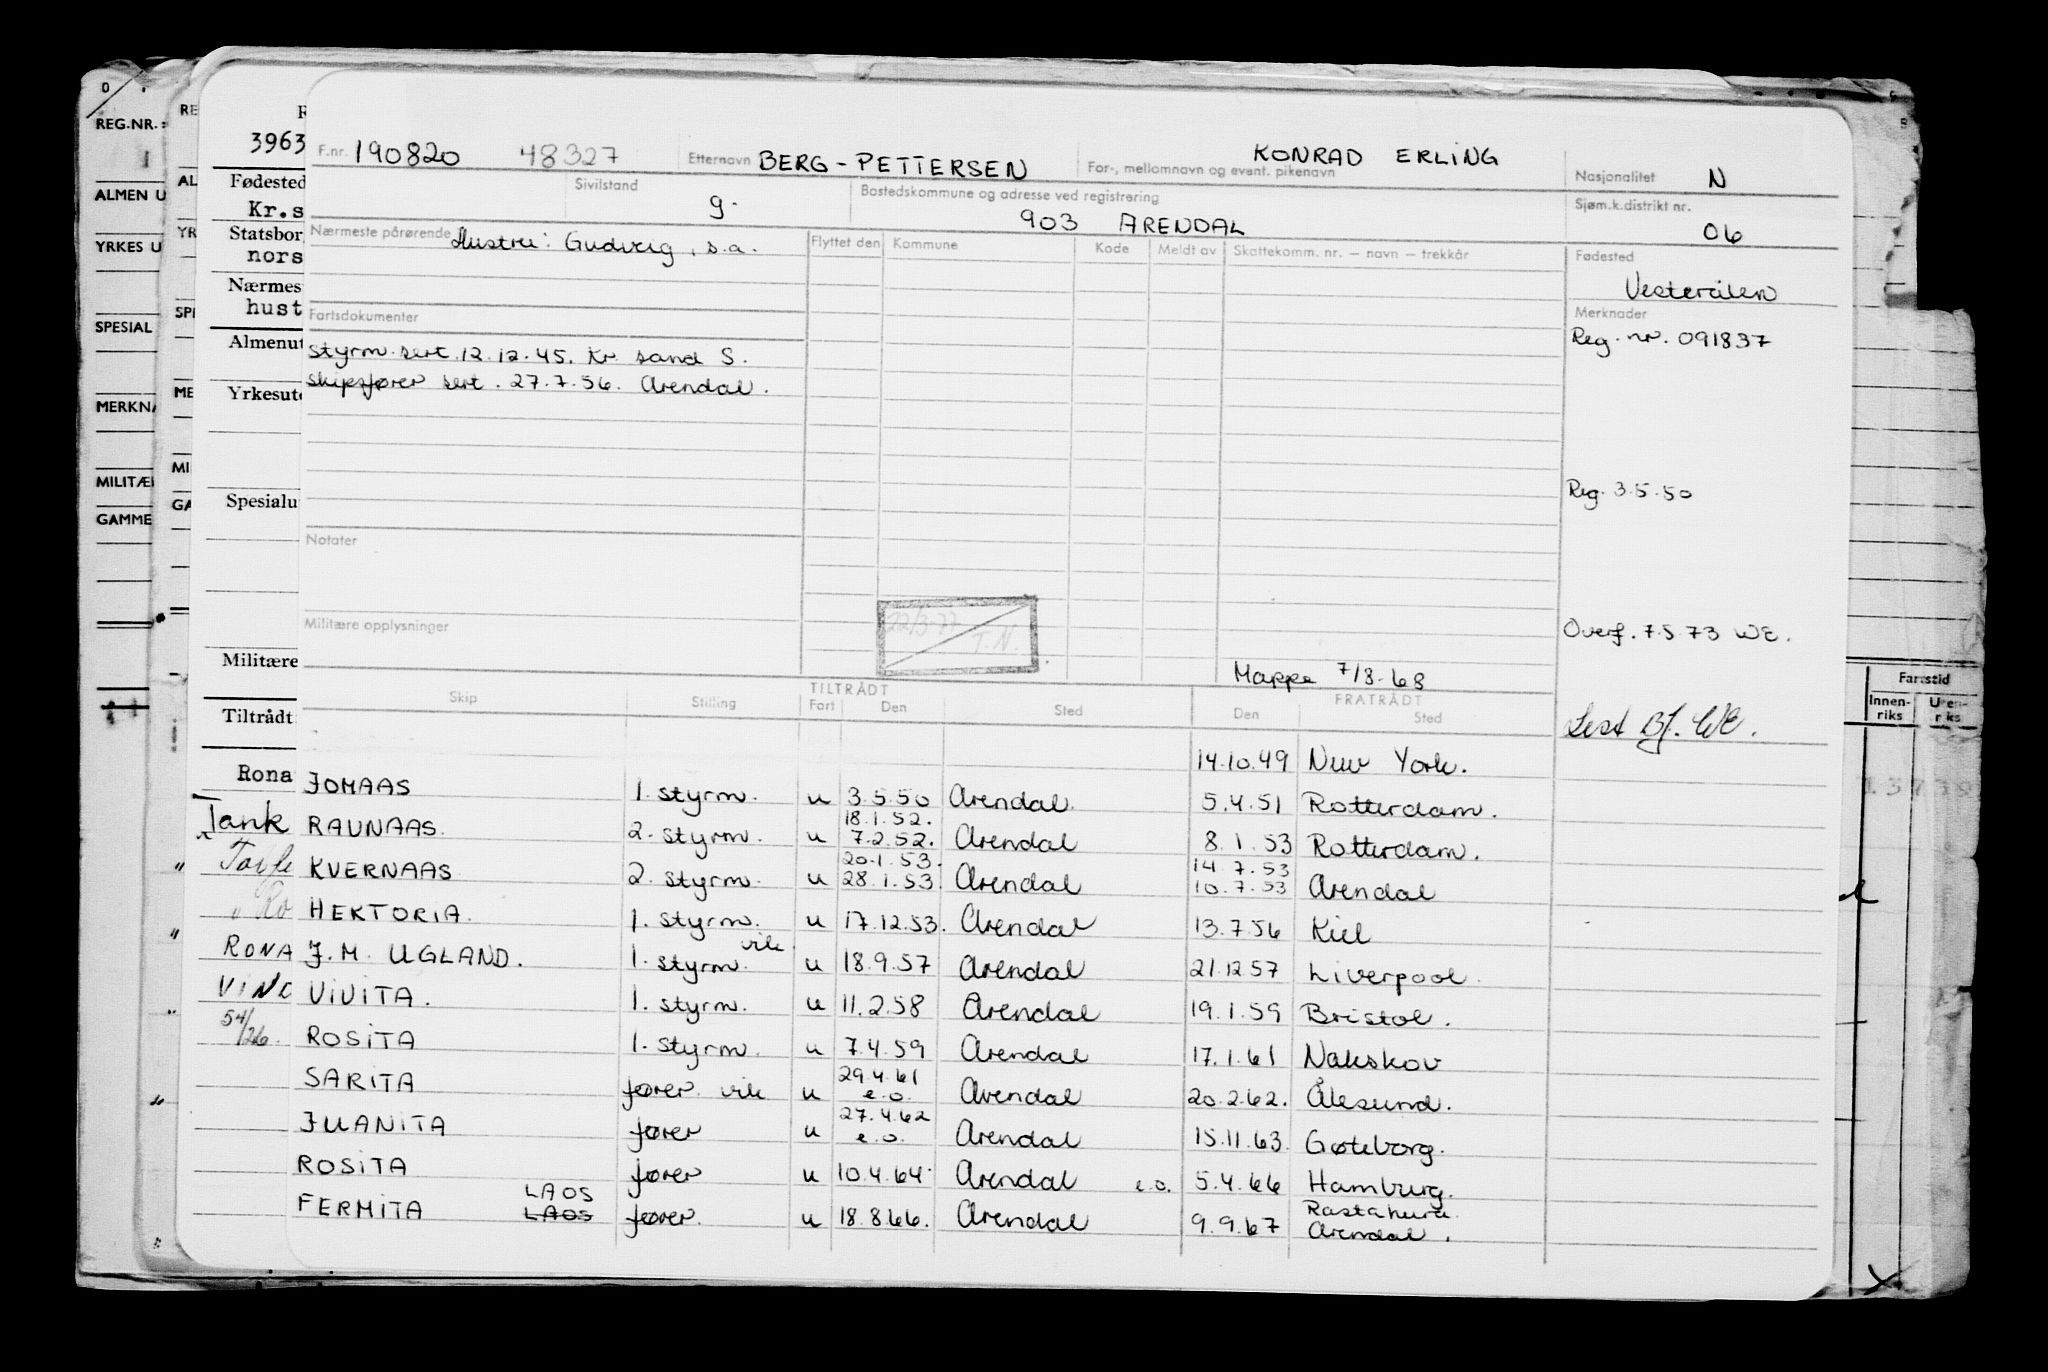 F.nr. 190820 48327 Etternavn BERG-PETTERSEN For-, mellomnavn og event. pikenavn KONRAD ERLING Nasjonalitet N
Sivilstand g. Bostedskommune og adresse ved registrering 903 ARENDAL Sjøm.k.distrikt nr. 06
Nærmeste pårørende Hustru: Gudveig, s.a. Flyttet den Kommune Kode Meldt av Skattekomm. nr. — navn — trekkår Fødested
Fartsdokumenter Merknader
styrm. sert. 12.12.45. Kr. sand S. Reg. nr. 091837
skipsfører sert. 27.7.56. Arendal.
Reg. 3.5.50
Notater
22/3-77 T.N.
Militære opplysninger Overf. 7.5.73 WE.
Mappe 7/8-68
Skip Stilling TILTRÅDT Fart Den Sted FRATRÅDT Den Sted
14.10.49 New York.
JOMAAS 1. styrm. u 3.5.50 Arendal. 5.4.51 Rotterdam.
18.1.52.
RAUNAAS. 2. styrm. u 7.2.52. Arendal 8.1.53 Rotterdam.
20.1.53. 14.7.53
KVERNAAS 2. styrm. u 28.1.53. Arendal 10.7.53 Arendal
HEKTORIA. 1. styrm. u 17.12.53. Arendal 13.7.56 Kiel
J.M. UGLAND. 1. styrm. vik u 18.9.57 Arendal 21.12.57 Liverpool.
VIVITA. 1. styrm. u 11.2.58 Arendal 19.1.59 Bristol.
ROSITA 1. styrm. u 7.4.59 Arendal 17.1.61 Nakskov
29.4.61
SARITA fører vik u e.o. Arendal 20.2.62. Ålesund.
27.4.62
JUANITA fører u e.o. Arendal 15.11.63. Gøteborg.
ROSITA fører u 10.4.64. Arendal e.o. 5.4.66 Hamburg.
LAOS
FERMITA LAOS fører. u 18.8.66. Arendal 9.9.67 Arendal.
3963
Fødested
Kr.s
Statsbor
nors
Nærmes
hust
Almenut
Yrkesut
Spesialu
Militære
Tiltrådt
Rona
Tank
RONA
VIND
54/26.
REG.NR.
ALMEN U
YRKES U
SPESIAL
MERKNA
MILITÆ
GAMME
RE
AL
YR
SP
ME
MI
GA
Fartstid
Innen-
riks